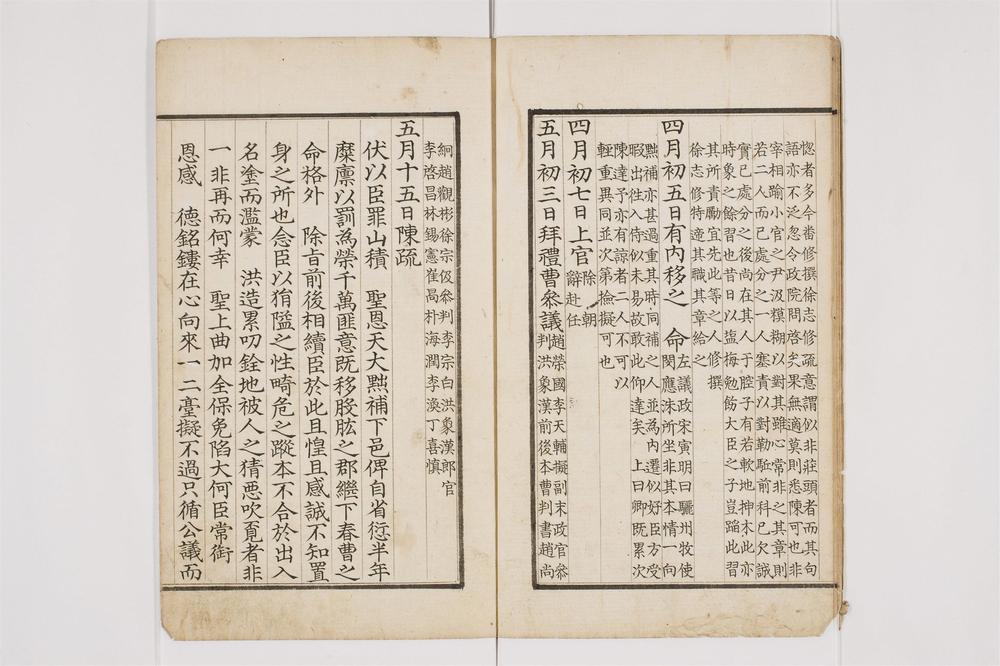 惚者多今畨修撰徐志修疏意謂似非莊頭者而其句
語亦不泛忽令政院問啓矣果無適莫則悉陳可也非
宰相踰小官之尹汲糢糊以對其雖心常非之其章則
若二人而已處分之一人塞責以對勒駈前科已欠誠
實已處分之後尚在其人于腔子有若軟地揷木此亦
時象之餘習也昔日以塩梅勉飭大臣之子豈蹈此習
其所責勵宜先此等之人修撰
徐志修特遆其職其章給之
四月初五日有內移之 命左議政宋寅明曰驪州牧使
閔應洙所坐非其本情一向
黜補亦甚過重其時同補之人並為內遷似好臣方受
暇出徃入侍似未易故敢此仰達矣 上曰卿既累次
陳達予亦有諒者二人不可以
輕重異同並次第撿擬可也
四月初七日上官除朝
辭赴任
五月初三日拜禮曹參議趙榮國李天輔擬副末政官參
判洪象漢前後本曹判書趙尚
絅趙觀彬徐宗伋參判李宗白洪象漢郎官
李啓昌林錫憲崔昺朴海潤李渙丁喜慎
五月十五日陳疏
伏以臣罪山積 聖恩天大黜補下邑俾自省愆半年
糜廪以罰為榮千萬匪意既移股肱之郡繼下春曹之
命格外 除旨前後相續臣於此且惶且感誠不知置
身之所也念臣以狷隘之性畸危之蹤本不合於出入
名塗而濫蒙 洪造累叨銓地被人之猜惡吹覔者非
一非再而何幸 聖上曲加全保免陷大何臣常銜
恩感 德銘鏤在心向來一二臺擬不過只循公議而